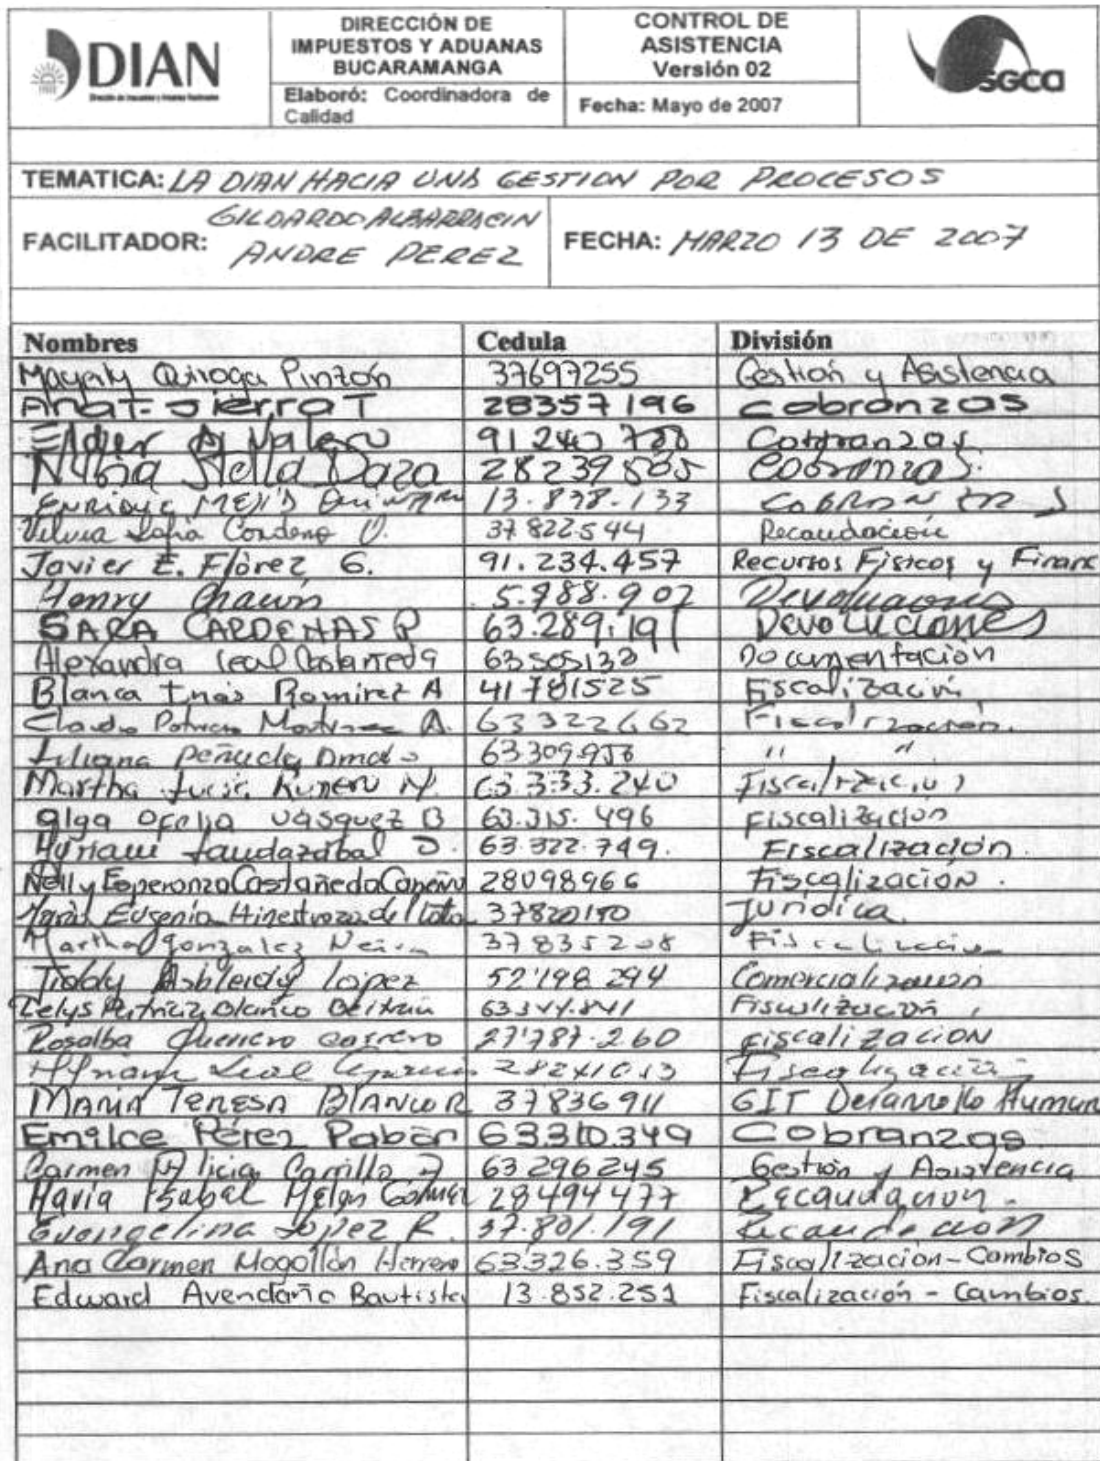 DIAN
DIRECCIÓN DE
IMPUESTOS Y ADUANAS
BUCARAMANGA
Elaboró: Coordinadora de
Calidad
CONTROL DE
ASISTENCIA
Versión 02
Fecha: Mayo de 2007
SGCA
TEMATICA: LA DIAN HACIA UNA GESTION POR PROCESOS
FACILITADOR: GILDARDO ALBARRACIN
ANDRE PEREZ
FECHA: MARZO 13 DE 2007
Nombres Cedula División
Magaly Quiroga Pinzón 37697255 Gestión y Asistencia
Ana T. Sierra T 28357196 Cobranzas
Valero 91.240 Cobranzas
Nubia Stella Daza 28239505 Cobranzas.
Enrique MEJIA 13.838.133 COBRANZAS
Sofia Cordero 37.822.544 Recaudación
Javier E. Flórez G. 91.234.457 Recursos Físicos y Financ
Henry Chacón 5.788.902 Devoluciones
SARA CARDENAS P 63.289.191 Devoluciones
Alexandra Leal Castañeda 63505132 Documentación
Blanca Inés Ramirez A 41781525 Fiscalización
Claudia Patricia Martinez A. 63322662 Fiscalización.
Liliana Peñuela 63.309.958 " "
Martha Lucia 63.333.240 Fiscalización
Olga Ofelia Vasquez B 63.315.496 Fiscalización
Myriam Landazabal D. 63.322.749. Fiscalización.
Nelly Esperanza Castañeda 28098966 Fiscalización.
Maria Eugenia Hinestroza de 37820150 Jurídica.
Martha Gonzalez Neira 37835208 Fiscalización
Lopez 52'198.294 Comercialización
Patricia Blanco Beltrán 63344.841 Fiscalización
Rosalba Carrero 27'787.260 Fiscalización
Leal 28241013 Fiscalización
MARIA TERESA BLANCO R 37836911 GIT Desarrollo Human
Emilce Pérez Pabón 63310.349 Cobranzas
Carmen Alicia Carrillo 63.296245 Gestión y Asistencia
Maria Isabel Gómez 28494477 Recaudación.
Evangelina López R. 37.801.191 Recaudación
Ana Carmen Mogollón Herrera 63326.359 Fiscalización-Cambios
Edward Avendaño Bautista 13.852.251 Fiscalización - Cambios.